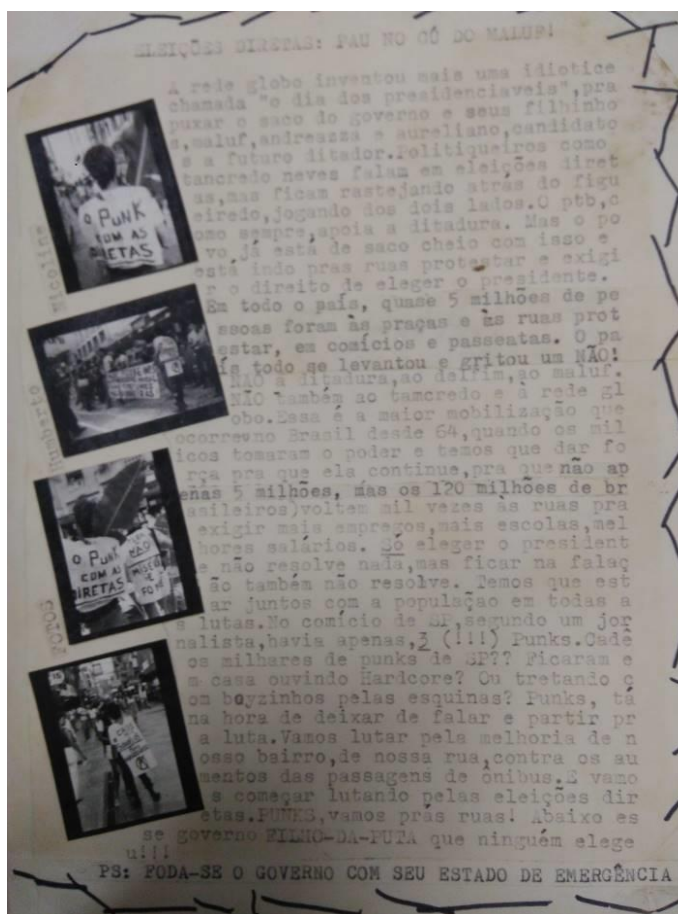 ELEIÇÕES DIRETAS: PAU NO CÚ DO MALUF!
A rede globo inventou mais uma idiotice
chamada "o dia dos presidenciaveis",pra
puxar o saco do governo e seus filhinho
s,maluf,andreazza e aureliano,candidato
s a futuro ditador.Politiqueiros como
tancredo neves falam em eleições diret
as,mas ficam rastejando atrás do figu
eiredo,jogando dos dois lados.O ptb,c
omo sempre,apoia a ditadura. Mas o po
vo,já está de saco cheio com isso e
está indo pras ruas protestar e exigi
r o direito de eleger o presidente.
Em todo o país, quase 5 milhões de pe
ssoas foram às praças e às ruas prot
estar, em comícios e passeatas. O pa
ís todo se levantou e gritou um NÃO!
NÃO à ditadura,ao delfim,ao maluf.
NÃO também ao tamcredo e à rede gl
obo.Essa é a maior mobilização que
ocorreu no Brasil desde 64,quando os mil
icos tomaram o poder e temos que dar fo
rça pra que ela continue,pra que não ap
enas 5 milhões, mas os 120 milhões de br
asileiros)voltem mil vezes às ruas pra
exigir mais empregos,mais escolas,mel
hores salários. Só eleger o president
e não resolve nada,mas ficar na falaç
ão também não resolve. Temos que est
ar juntos com a população em todas a
s lutas.No comício de SP,segundo um jor
nalista,havia apenas,3 (!!!) Punks.Cadê
os milhares de punks de SP?? Ficaram e
m casa ouvindo Hardcore? Ou tretando c
om boyzinhos pelas esquinas? Punks, tá
na hora de deixar de falar e partir pr
a luta.Vamos lutar pela melhoria de n
osso bairro,de nossa rua,contra os au
mentos das passagens de ônibus.E vamo
s começar lutando pelas eleições dir
etas.PUNKS,vamos prás ruas! Abaixo es
se governo FILHO-DA-PUTA que ninguém elege
u!!!
PS: FODA-SE O GOVERNO COM SEU ESTADO DE EMERGÊNCIA
FOTOS
Humberto
Nicoline
O PUNK
COM AS
DIRETAS
O PUNK
COM AS
DIRETAS
NÃO